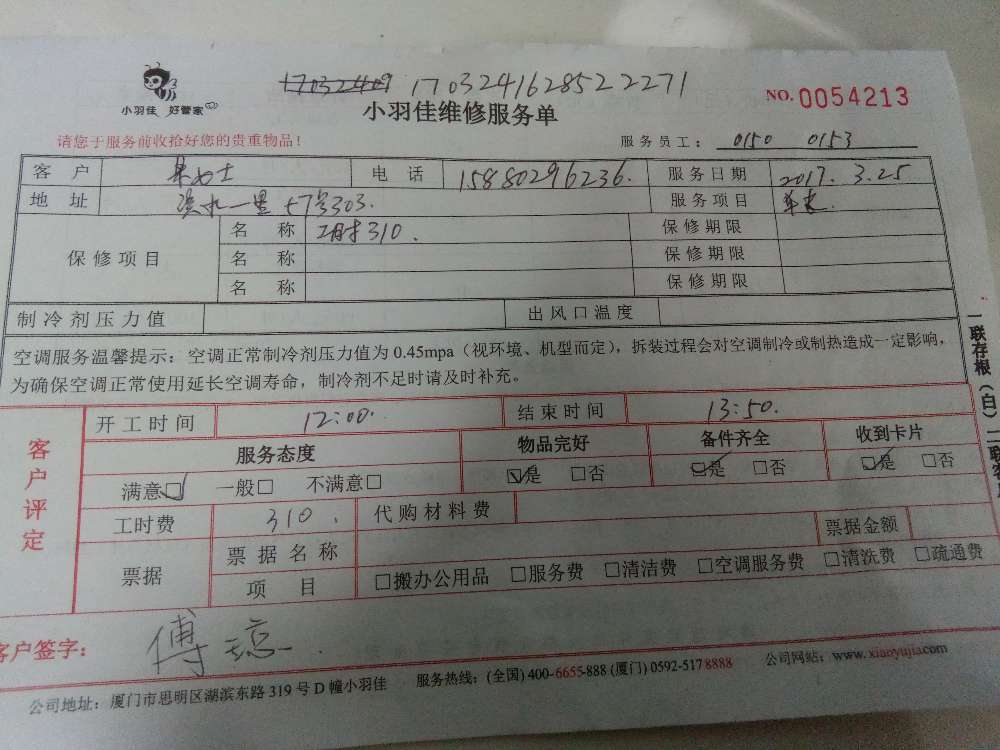 小羽佳 好管家
17032416285222271
小羽佳维修服务单
NO. 0054213
请您于服务前收拾好您的贵重物品！
服务员工： 0150 0153
客户 女士 电话 15880296236. 服务日期 2017.3.25
地址 滨北一里57号303. 服务项目
保修项目 名称 工时310. 保修期限
名称 保修期限
名称 保修期限
制冷剂压力值 出风口温度
空调服务温馨提示：空调正常制冷剂压力值为0.45mpa（视环境、机型而定），拆装过程会对空调制冷或制热造成一定影响，
为确保空调正常使用延长空调寿命，制冷剂不足时请及时补充。
一联存根（白）二联客
客户评定
开工时间 12:00. 结束时间 13:50.
服务态度 物品完好 备件齐全 收到卡片
满意☑ 一般□ 不满意□ ☑是 □否 ☑是 □否 ☑是 □否
工时费 310. 代购材料费 票据金额
票据 票据名称
项目 □搬办公用品 □服务费 □清洁费 □空调服务费 □清洗费 □疏通费
客户签字： 傅琼
公司地址：厦门市思明区湖滨东路319号D幢小羽佳 服务热线：(全国) 400-6655-888 (厦门) 0592-5178888 公司网站：www.xiaoyujia.com